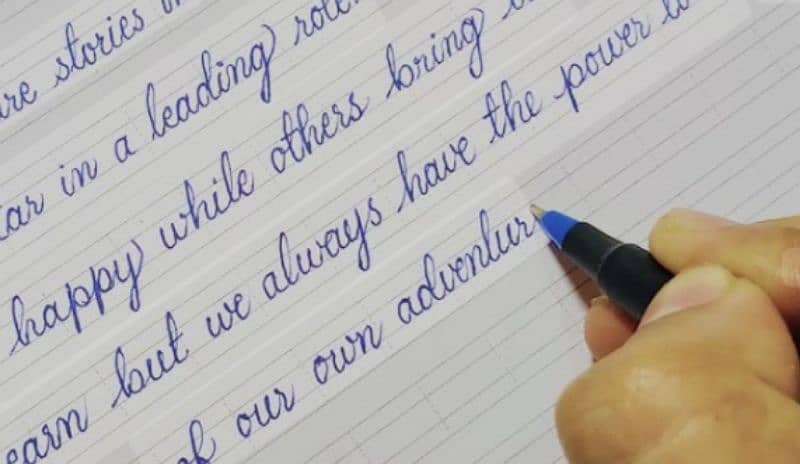 stories
in a leading
happy while others bring
earn but we always have the power to
of our own adventur